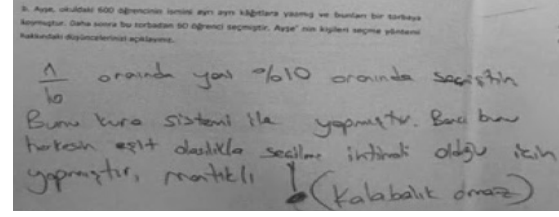 b. Ayşe, okuldaki 600 öğrencinin ismini ayrı ayrı kâğıtlara yazmış ve bunları bir torbaya
koymuştur. Daha sonra bu torbadan 60 öğrenci seçmiştir. Ayşe' nin kişileri seçme yöntemi
hakkındaki düşüncelerinizi açıklayınız.
1/10 oranında yani %10 oranında seçmiştir
Bunu kura sistemi ile yapmıştır. Bence bunu
herkesin eşit olasılıkla seçilme ihtimali olduğu için
yapmıştır, mantıklı ! (Kalabalık olmaz)